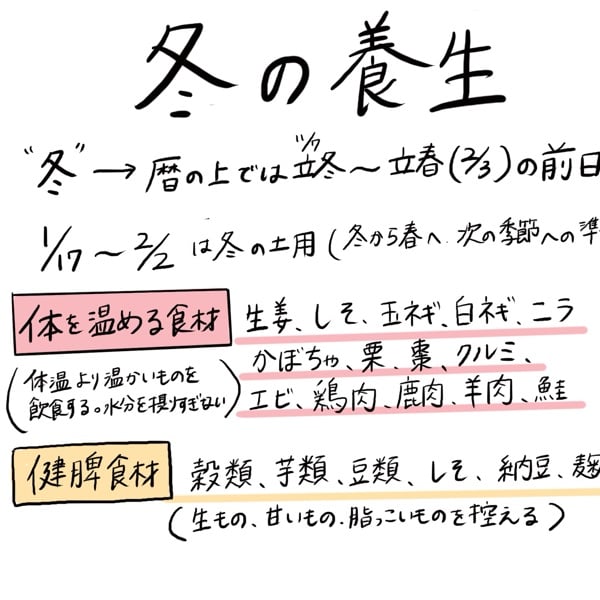 冬の養生
"冬"→暦の上では立冬~立春(2/3)の前日
11/7
1/17~2/2は冬の土用(冬から春へ次の季節への準
体を温める食材
生姜、しそ、玉ネギ、白ネギ、ニラ
かぼちゃ、栗、棗、クルミ、
エビ、鶏肉、鹿肉、羊肉、鮭
(体温より温かいものを
飲食する。水分を摂りすぎない)
健脾食材
穀類、芋類、豆類、しそ、納豆、麹
(生もの、甘いもの、脂っこいものを控える)